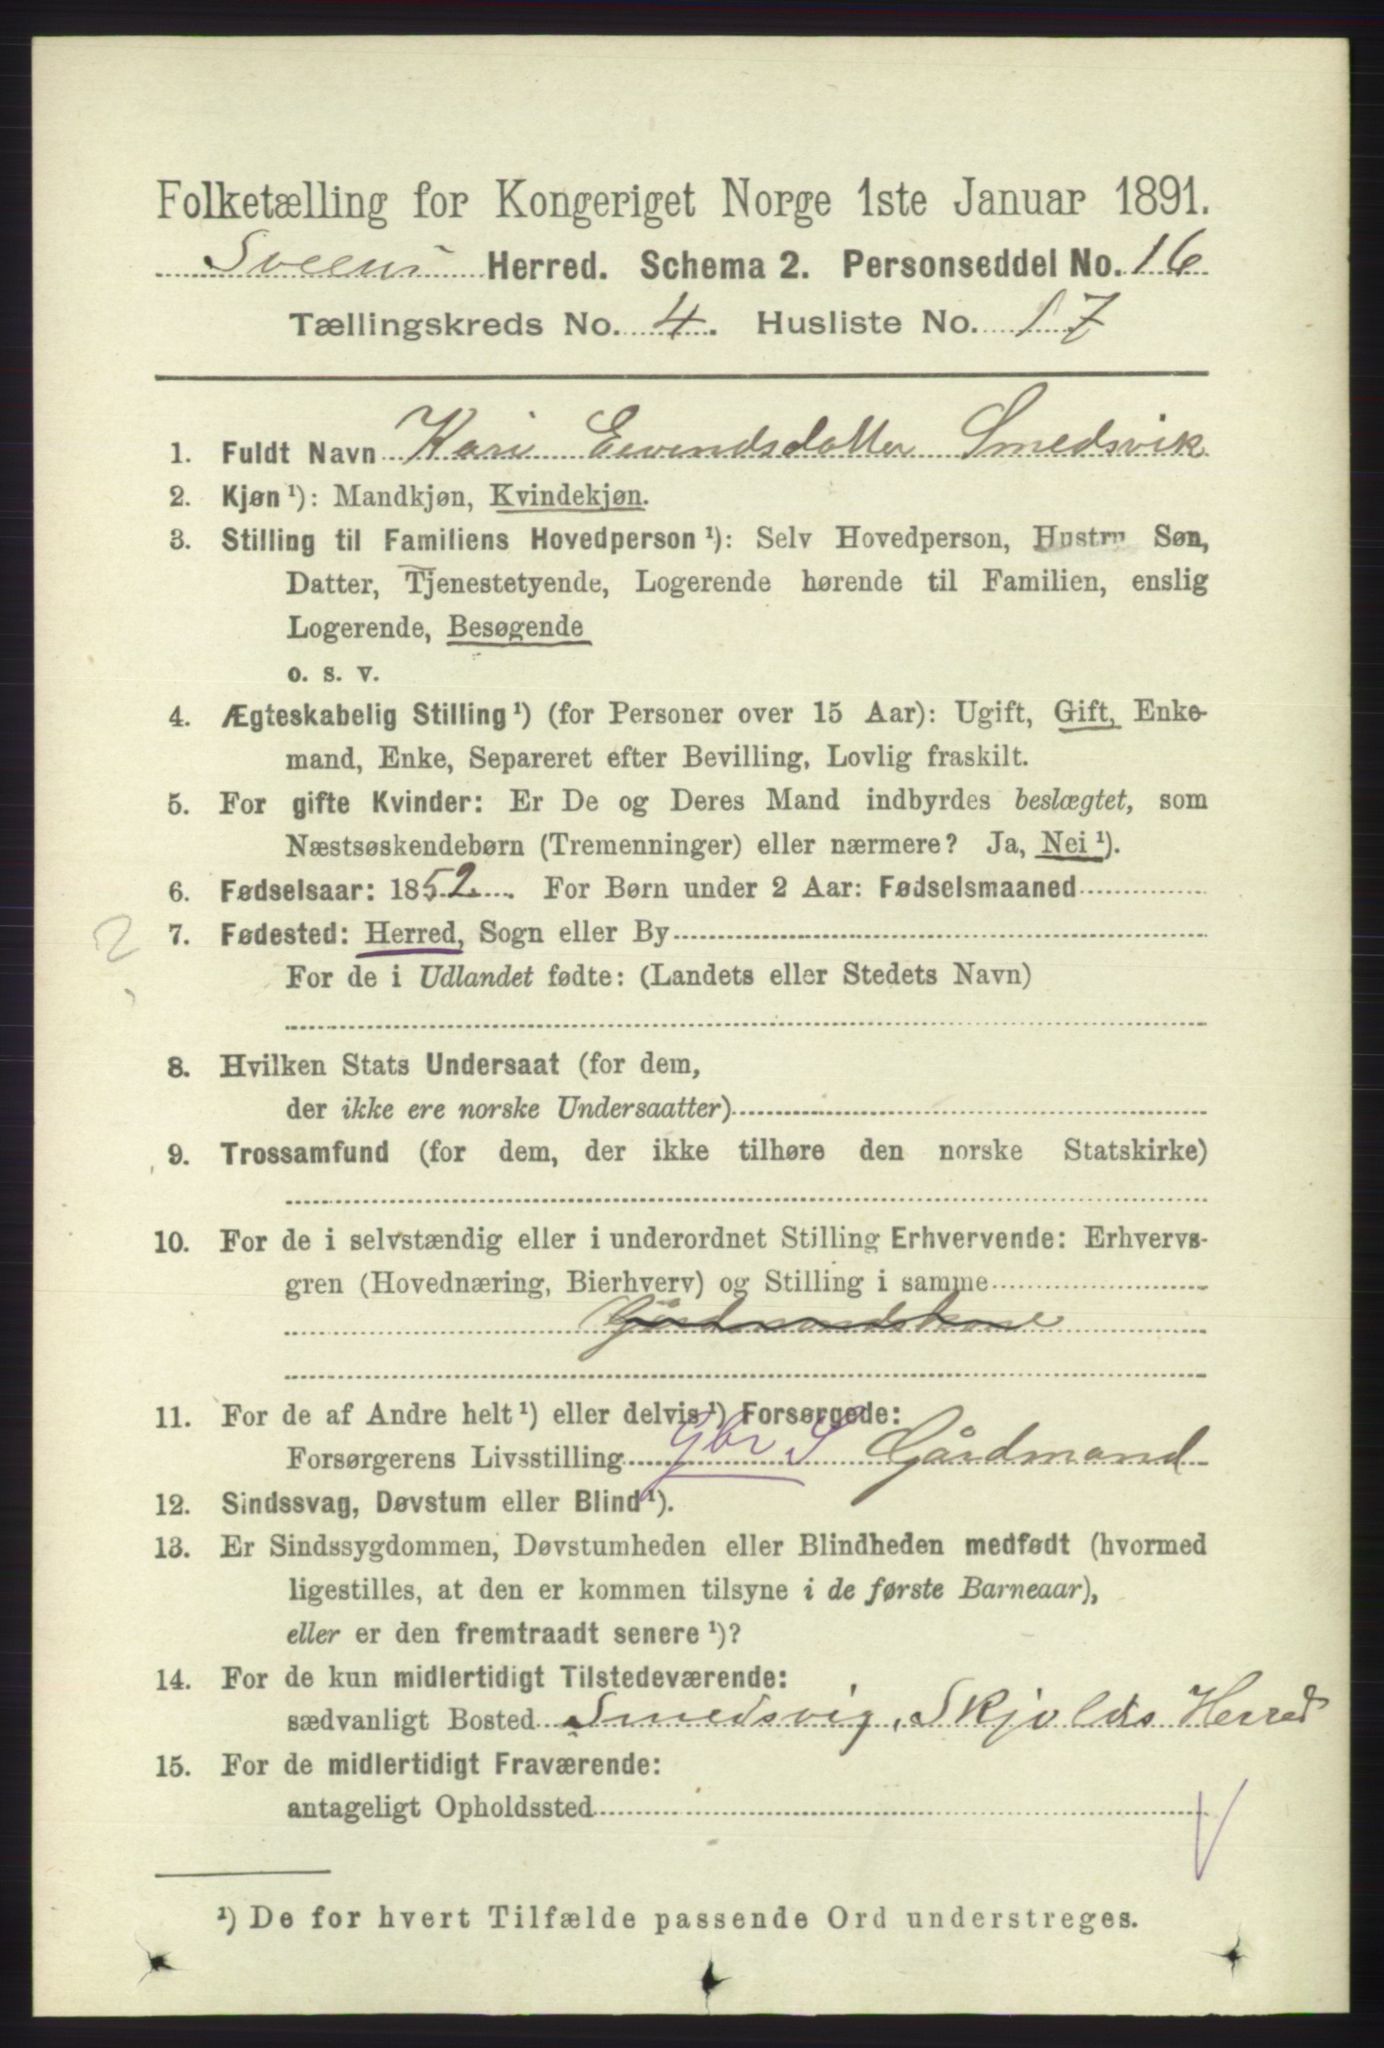 Folketælling for Kongeriget Norge 1ste Januar 1891.
Sveens Herred. Schema 2. Personseddel No. 16
Tællingskreds No. 4. Husliste No. 17
1. Fuldt Navn Kari Eivendsdatter Smedsvik
2. Kjøn ¹): Mandkjøn, Kvindekjøn.
3. Stilling til Familiens Hovedperson ¹): Selv Hovedperson, Hustru Søn,
Datter, Tjenestetyende, Logerende hørende til Familien, enslig
Logerende, Besøgende
o. s. v.
4. Ægteskabelig Stilling ¹) (for Personer over 15 Aar): Ugift, Gift, Enke-
mand, Enke, Separeret efter Bevilling, Lovlig fraskilt.
5. For gifte Kvinder: Er De og Deres Mand indbyrdes beslægtet, som
Næstsøskendebørn (Tremenninger) eller nærmere? Ja, Nei ¹).
6. Fødselsaar: 1852. For Børn under 2 Aar: Fødselsmaaned
2 7. Fødested: Herred, Sogn eller By
For de i Udlandet fødte: (Landets eller Stedets Navn)
8. Hvilken Stats Undersaat (for dem,
der ikke ere norske Undersaatter)
9. Trossamfund (for dem, der ikke tilhøre den norske Statskirke)
10. For de i selvstændig eller i underordnet Stilling Erhvervende: Erhvervs-
gren (Hovednæring, Bierhverv) og Stilling i samme
Gårdmandskone
11. For de af Andre helt ¹) eller delvis ¹) Forsørgede:
Forsørgerens Livsstilling Gbr S Gårdmand
12. Sindssvag, Døvstum eller Blind ¹).
13. Er Sindssygdommen, Døvstumheden eller Blindheden medfødt (hvormed
ligestilles, at den er kommen tilsyne i de første Barneaar),
eller er den fremtraadt senere ¹)?
14. For de kun midlertidigt Tilstedeværende:
sædvanligt Bosted Smedsvig, Skjolds Herred
15. For de midlertidigt Fraværende:
antageligt Opholdssted
¹) De for hvert Tilfælde passende Ord understreges.